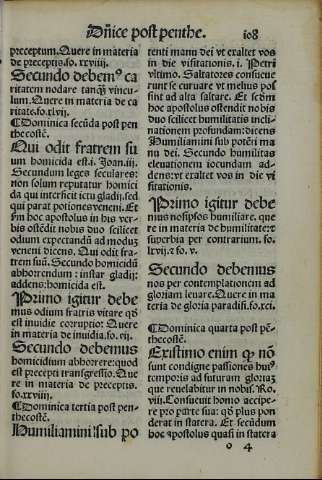 Dñice post penthe.
io8
preceptum. Quere in materia
de preceptis. fo. xxviiij.
Secundo debem⁹ ca
ritatem nodare tanqȝ vincu-
lum. Quere in materia de ca
ritate. fo. xlvij.
¶ Dominica secūda post pen
thecostē.
Qui odit fratrem su
um homicida est. i. Joan. iij.
Secundum leges seculares:
non solum reputatur homici
da qui interficit ictu gladij. sed
qui parat potiones veneni. Et
hoc apostolus in his ver-
bis ostēdit nobis duo scilicet
odium expectandū ad modum
veneni dicens. Qui odit fra-
trem suū. Secundo homicidiū
abhorrendum: instar gladij:
addens: homicida est.
Primo igitur debe
mus odium fratris vitare qȝ
est inuidie corruptio: Quere
in materia de inuidia. fo. cij.
Secundo debemus
homicidium abhorrere: quod
est precepti transgressio. Que
re in materia de preceptis.
fo. xxviij.
¶ Dominica tertia post pen-
thecostē.
Humiliamini sub po
tenti manu dei vt exaltet vos
in die visitationis. i. Petri
vltimo. Saltatores consueue
runt se curuare vt melius pos
sint ad alta saltare. Et
hoc apostolus ostendit nobis
duo scilicet humilitatis incli-
nationem profundam: dicens
Humiliamini sub potēti ma
nu dei. Secundo humilitas
eleuationem iocundam ad-
dens: vt exaltet vos in die vi
sitationis.
Primo igitur debe
mus nosipsos humiliare. que
re in materia de humilitate: et
superbia per contrarium. fo.
lxvij. et fo. v.
Secundo debemus
nos per contemplationem ad
gloriam leuare. Quere in ma
teria de gloria paradisi. fo. xci.
¶ Dominica quarta post pē-
thecostē.
Existimo enim qȝ nō
sunt condigne passiones hui⁹
temporis ad futuram gloriaȝ
que reuelabitur in nobis. Ro.
viij. Consueuit homo accipe-
re pro parte sua: qȝ plus pon
derat in statera. Et secūdum
hoc apostolus quasi in statera
o 4